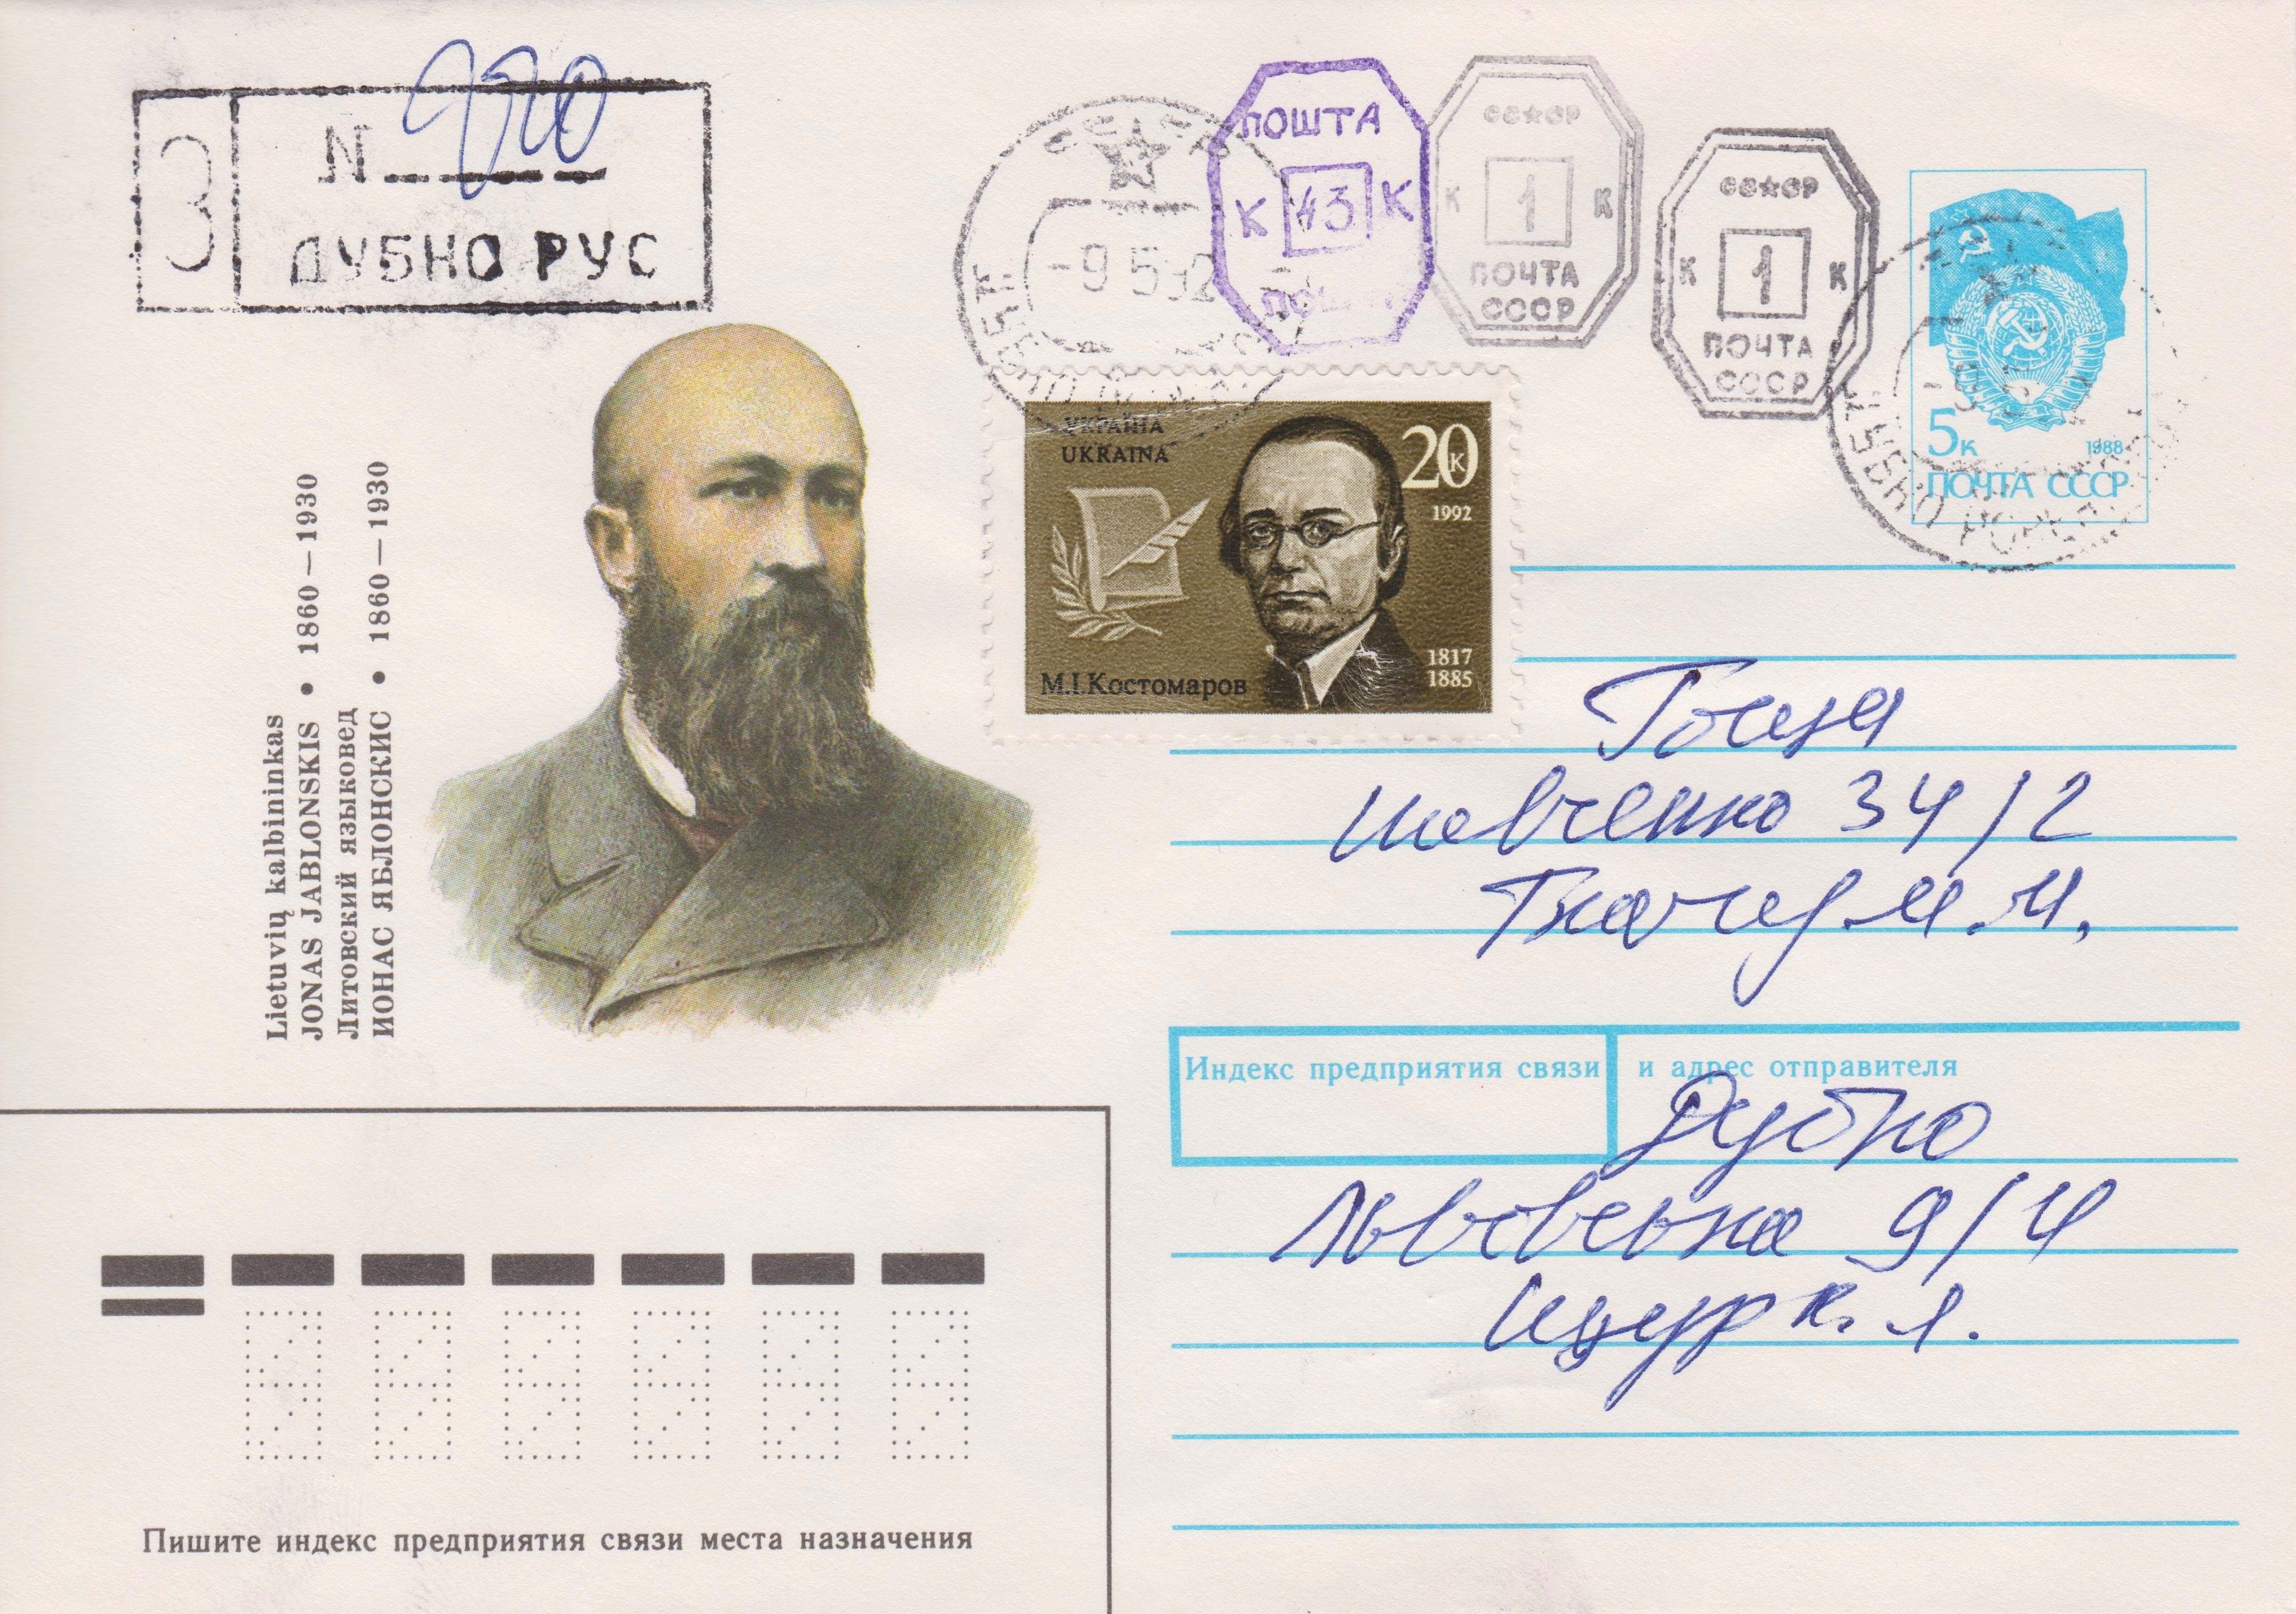 З
N 920
ДУБНО РУС
-9 5 92
ДУБНО
ПОШТА
К 43 К
ПОШТА
СССР
К 1 К
ПОЧТА
СССР
СССР
К 1 К
ПОЧТА
СССР
5к
1988
ПОЧТА СССР
ДУБНО
УКРАЇНА
UKRAINA
20 К
1992
1817
1885
М.І.Костомаров
Lietuvių kalbininkas
JONAS JABLONSKIS • 1860—1930
Литовский языковед
ИОНАС ЯБЛОНСКИС • 1860—1930
Гоща
Шевченко 34/2
Ткачук М.М.
Индекс предприятия связи и адрес отправителя
Дубно
Львовська 9/4
Щур К. Я.
Пишите индекс предприятия связи места назначения